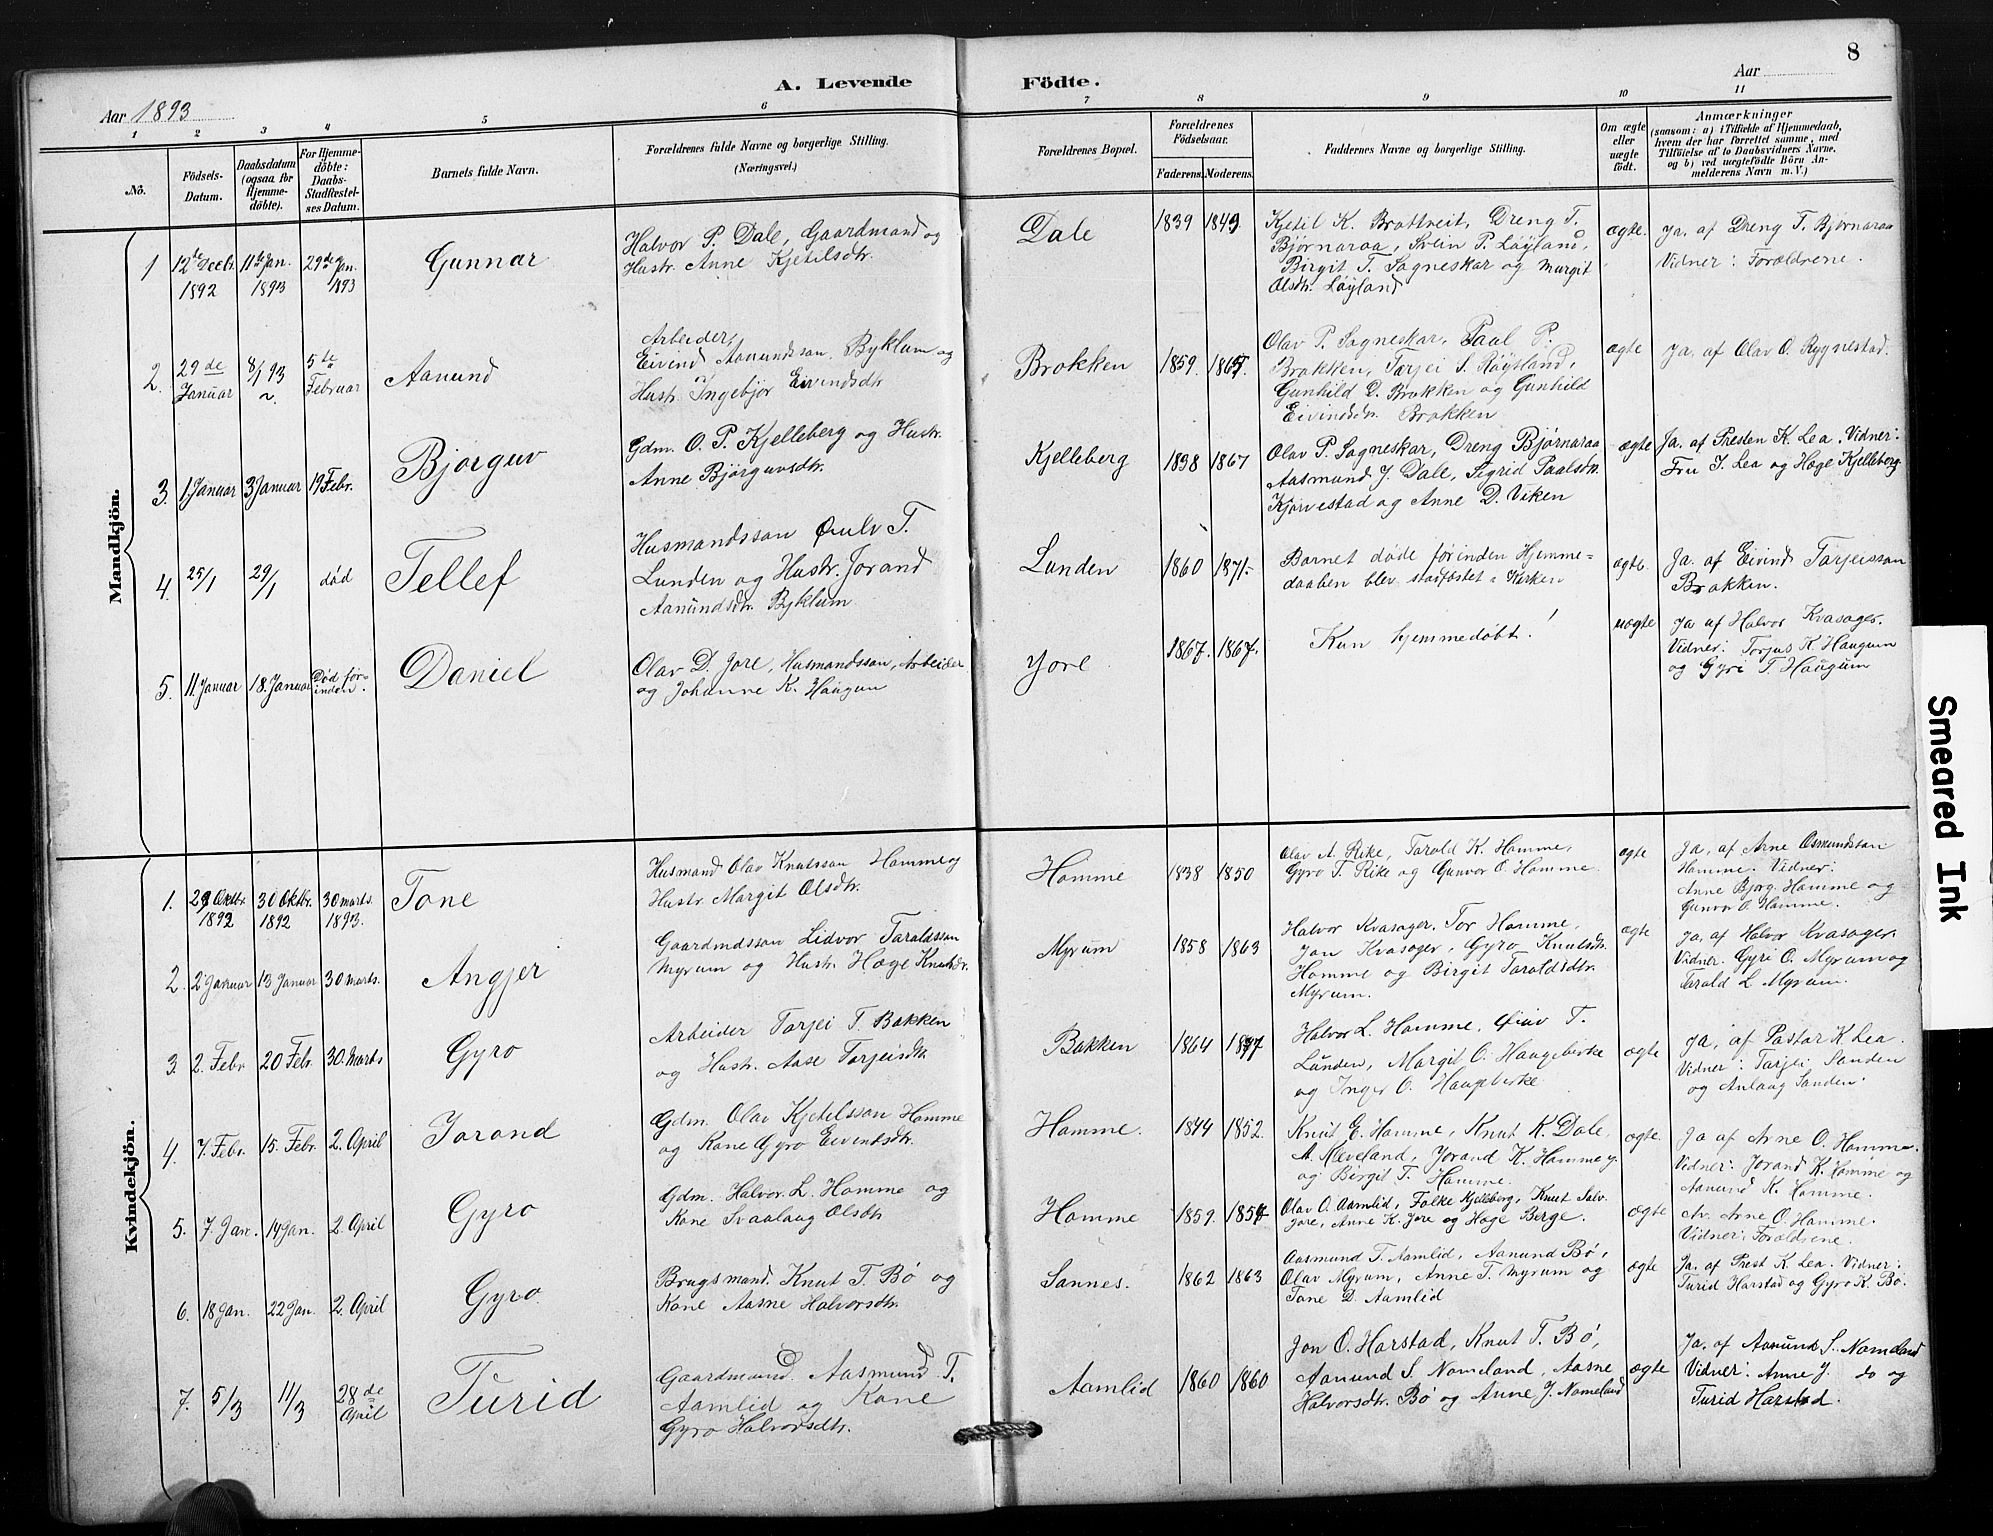 8
A. Levende Födte.
Aar 1893
Aar
1 2 3 4 5 6 7 8 9 10 11
No.
Födsels-Datum.
Daabsdatum (ogsaa for Hjemmedöbte).
For Hjemmedöbte: Daabs-Stadfæstelses Datum.
Barnets fulde Navn.
Forældrenes fulde Navne og borgerlige Stilling.
(Næringsvei.)
Forældrenes Bopæl.
Forældrenes Födselsaar.
Faderens. Moderens.
Faddernes Navne og borgerlige Stilling.
Om ægte eller uægte födt.
Anmærkninger
(saasom: a) i Tilfælde af Hjemmedaab, hvem der har forrettet samme, med Tilföielse af to Daabsvidners Navne, og b) ved uægtefödte Börn Anmelderens Navn m. V.)
Mandkjön.
1 12te Decbr. 1892 11te Jan. 1893 29de Jan. 1893
Gunnar
Halvor P. Dale, Gaardmand og
Hustr. Anne Kjetilsdtr.
Dale
1839 1849
Kjetil K. Brottveit, Dreng T.
Bjørnaraa, Svein P. Løyland,
Birgit T. Sagneskar og Margit
Olsdtr. Løyland
ægte.
Ja. af Dreng T. Bjørnaraa
Vidner: Forældrene.
2. 29de Januar 8/1 93 5te Februar
Aanund
Arbeider,
Eivind Aanundsson Byklum og
Hustr. Ingebjor Eivindsdtr
Brokken
1859. 1865.
Olav P. Sagneskar, Paal P.
Brokken, Tarjei S. Røysland,
Gunhild D. Brokken og Gunhild
Eivindsdtr. Brokken
ægte
Ja. af Olav O. Rygnestad.
3. 1 Januar 3 Januar 19 Febr.
Bjørguv
Gdm. O. P. Kjelleberg og Hustr.
Anne Bjørguvsdtr.
Kjelleberg
1838 1867
Olav P. Sagneskar, Dreng Bjørnaraa
Aasmund J. Dale, Sigrid Paalsdtr.
Kjørvestad og Anne D. Viken
ægte
Ja. af Presten K. Lea. Vidner:
Fru J. Lea og Hæge Kjelleberg
4. 25/1 29/1 død
Tellef
Husmandsson Øiulv T.
Lunden og Hustr. Jorand
Aanundsdtr Byklum
Lunden
1860 1871.
Barnet døde førinden Hjemme=
daaben blev stadfæstet i Kirken
ægte.
Ja. af Eivind Tarjeisson
Brokken.
5. 11 Januar 18. Januar Død før-inden.
Daniel
Olav D. Jore, Husmandsson, Arbeider
og Johanne K. Haugum
Jore
1867. 1867.
Kun hjemmedøbt!
uægte
Ja af Halvor Kvasager.
Vidner: Torjus K. Haugum
og Gyri T. Haugum
Kvindekjön.
1. 29 Oktbr. 1892 30 Oktbr. 1892 30 marts. 1893.
Tone
Husmand Olav Knutsson Homme og
Hustr. Margit Olsdtr.
Homme
1838 1850
Olav A. Rike, Tarald K. Homme,
Gyro T. Rike og Gunvor O. Homme.
ægte
Ja, af Arne Osmundsson
Homme. Vidner:
Anne Bjørg. Homme og
Gunvor O. Homme.
2. 2 Januar 13 Januar 30 marts.
Angjer
Gaardmdsson Lidvor Taraldsson
Myrum og Hustr. Hæge Knutsdr.
Myrum
1858 1863
Halvor Kvasager, Tor Homme,
Jon Kvasager, Gyro Knutsdtr.
Homme og Birgit Taraldsdtr.
Myrum.
ægte
Ja. af Halvor Kvasager.
Vidner. Gyri O. Myrum og
Tarald L. Myrum.
3. 2. Febr 20 Febr. 30. Marts
Gyro
Arbeider Tarjei T. Bakken
og Hustr. Aase Tarjeisdtr.
Bakken
1864
Halvor L. Homme, Øiuv T.
Lunden, Margit O. Haugebirke
og Inger O. Haugebirke
ægte
Ja, af Pastor K. Lea.
Vidner: Tarjei Sanden
og Anlaug Sanden.
4. 7. Febr. 15. Febr. 2. April
Jorand
Gdm. Olav Kjetelsson Homme
og Kone Gyro Eivindsdtr.
Homme.
1844 1852.
Knut E. Homme, Knut K. Dale,
A. Kleveland, Jorand K. Homme og.
og Birgit T. Homme.
ægte.
Ja af Arne O. Homme.
Vidner: Jorand K. Homme og
Aanund K. Homme.
5. 7. Jan. 14 Jan. 2. April
Gyro
Gdm. Halvor. L. Homme og
Kone Svaalaug Olsdtr
Homme
1859.
Olav O. Aamlid, Folke Kjelleberg, Knut Salv.
Jore, Anne K. Jore og Hæge Berge.
ægte
Av. Arne O. Homme.
Vidner: Forældrene.
6. 18 Jan. 22 Jan. 2. April
Gyro
Brugsmand. Knut T. Bø og
Kone Aasne Halvorsdtr.
Sannes.
1862 1863
Aasmund T. Aamlid, Aanund Bø,
Olav Myrum, Anne T. Myrum og
Tone D. Aamlid
ægte
Ja. af Prest K. Lea. Vidner:
Turid Harstad og Gyro K. Bø.
7. 5/3 11/3 28de April
Turid
Gaardmand. Aasmund T.
Aamlid og Kone
Gyro Halvorsdtr.
Aamlid
1860 1860
Jon O. Harstad, Knut T. Bø,
Aanund S. Nomeland, Aasne
Halvorsdtr. Bø og Anne J. Nomeland
ægte
Ja. af Aanund S. Nomeland
Vidner: Anne J. do og
Turid Harstad.
Smeared Ink